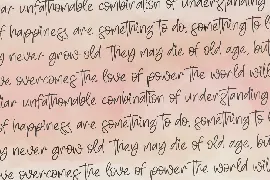 ar unfathomable combination of understanding
of happiness are something to do, something to l
y never grow old. They may die of old age, but
ve overcomes the love of power the world with
ar unfathomable combination of understanding
of happiness are something to do, something to l
y never grow old. They may die of old age, but
ve overcomes the love of power the world wi